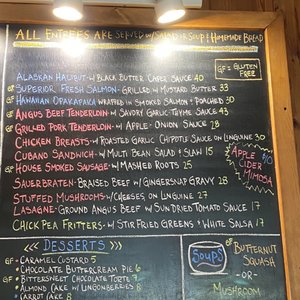 ALL ENTREES ARE SERVED W/ SALAD OR SOUP & HOMEMADE BREAD
GF = GLUTEN FREE
ALASKAN HALIBUT - W/ BLACK BUTTER CAPER SAUCE 40
GF SUPERIOR FRESH SALMON - GRILLED W/ MUSTARD BUTTER 33
GF HAWAIIAN OPAKAPAKA WRAPPED IN SMOKED SALMON & POACHED 30
GF ANGUS BEEF TENDERLOIN - W/ SAVORY GARLIC-THYME SAUCE 43
GF GRILLED PORK TENDERLOIN - W/ APPLE-ONION SAUCE 28
CHICKEN BREASTS - W/ ROASTED GARLIC CHIPOTLE SAUCE ON LINGUINE 30
CUBANO SANDWICH - W/ MULTI BEAN SALAD & SLAW 15
GF HOUSE SMOKED SAUSAGE - W/ MASHED ROOTS 25
SAUERBRATEN - BRAISED BEEF W/ GINGERSNAP GRAVY 28
STUFFED MUSHROOMS - W/ CHEESES, ON LINGUINE 27
LASAGNE - GROUND ANGUS BEEF W/ SUN DRIED TOMATO SAUCE 17
CHICK PEA FRITTERS - W/ STIR FRIED GREENS & WHITE SALSA 17
APPLE CIDER MIMOSA $10
DESSERTS
GF • CARAMEL CUSTARD 5
• CHOCOLATE BUTTERCREAM PIE 6
GF • BITTERSWEET CHOCOLATE TORTE 7
• ALMOND CAKE W/ LINGONBERRIES 8
• CARROT CAKE 8
SOUPS
GF BUTTERNUT SQUASH
- OR -
MUSHROOM